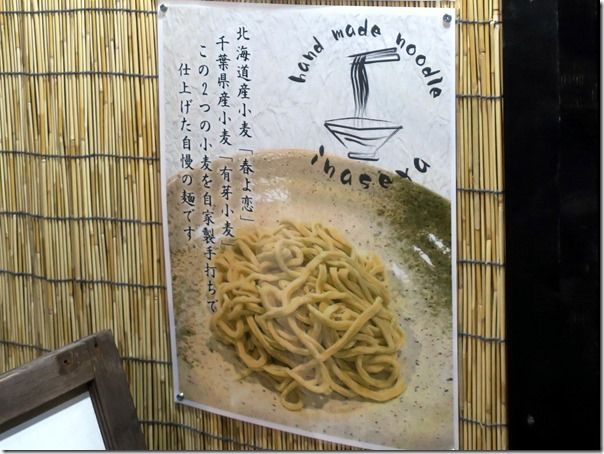 hand made noodle
inaseya
北海道産小麦「春よ恋」
千葉県産小麦「有芽小麦」
この2つの小麦を自家製手打ちで
仕上げた自慢の麺です